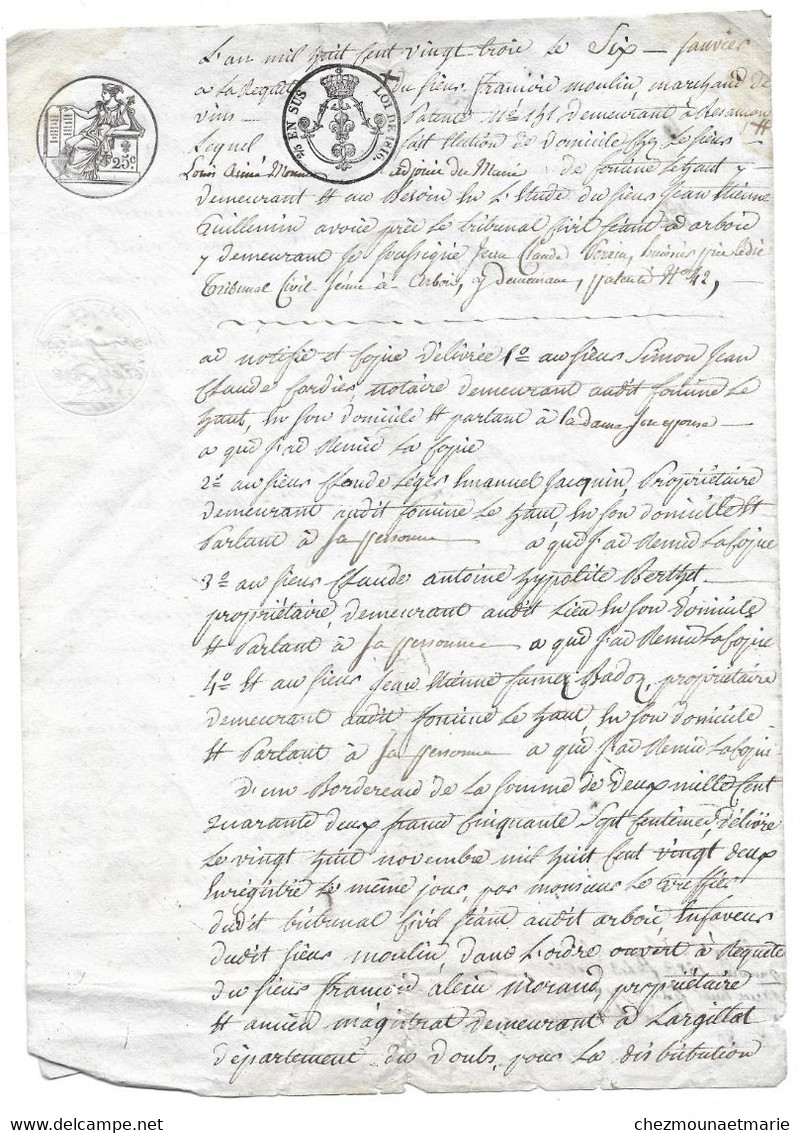 L'an mil huit cent vingt trois le Six — Janvier
a la Requete du sieur françois moulin, marchand de
vins Patente N.o 141 demeurant à Besançon
Lequel fait Election de domicile chez le sieur
Louis Aimé adjoint du Maire de fonine le haut y
demeurant et au Besoin en L'Etude du sieur Jean Etienne
Guillemin avoué près le tribunal Civil séant a arbois
y demeurant je soussigné Jean Claude huissier près ledit
Tribunal Civil séant à Arbois, y demeurant, patenté N.o 42,
25 EN SUS LOI DE 1816.
25c.
ai notifié et copie délivrée 1.o au sieur Simon Jean
Claude Cordier, notaire demeurant audit fonine le
haut, en son domicile et parlant à la dame son epouse
a qui j'ai Remis la Copie
2.o au sieur Claude Léger Emanuel Jacquin Propriétaire
demeurant audit fonine le haut en son domicile et
Parlant à sa personne a qui j'ai Remis la Copie
3.o au sieur Claude antoine hypolite Berthet
propriétaire, demeurant audit lieu en son domicile
et Parlant à sa personne a qui j'ai Remis la Copie
4.o et au sieur Jean Etienne Badoz, propriétaire
demeurant audit fonine le haut, en son domicile
et Parlant à sa personne a qui j'ai Remis la Copie
D'un Bordereau de la somme de deux mille Cent
quarante deux francs Cinquante Sept Centimes, délivré
le vingt huit novembre mil huit Cent vingt deux
Enregistré le même jour, par monsieur le Greffier
dudit tribunal Civil séant audit arbois, en faveur
dudit sieur moulin, dans l'ordre ouvert à Requete
du sieur françois alexis morand, propriétaire
et ancien magistrat demeurant à Largillat
département du Doubs, pour la distribution
chezmounaetmarie.delcampe.net